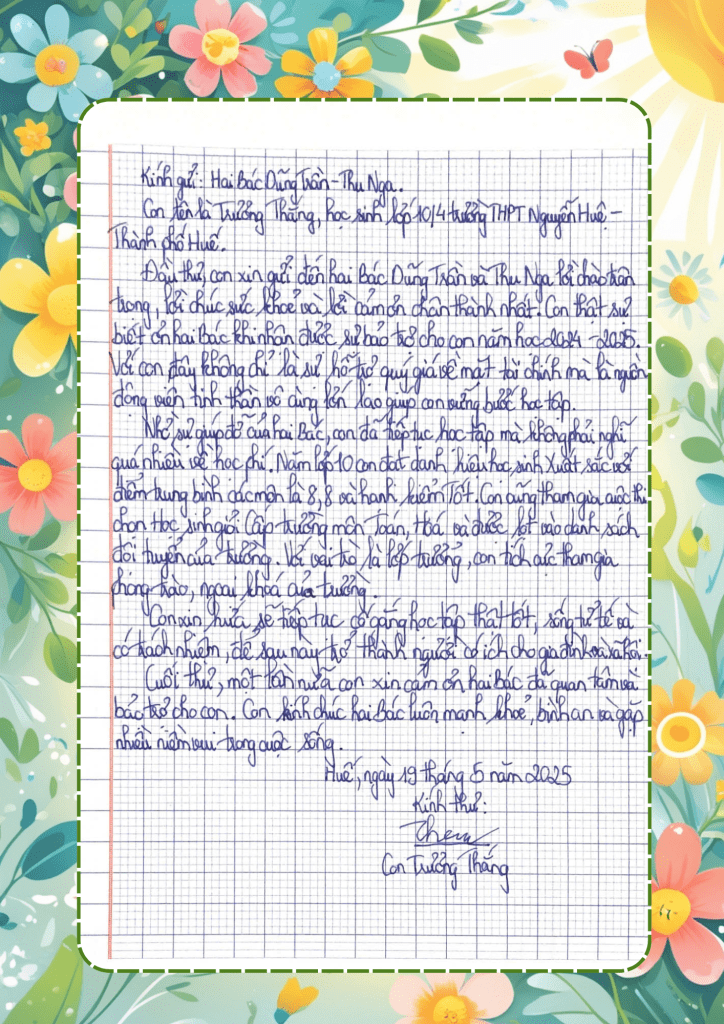 Kính gửi: Hai Bác Dũng Trần - Thu Nga.
Con tên là Trương Thắng, học sinh lớp 10/4 trường THPT Nguyễn Huệ -
Thành phố Huế.
Đầu thư, con xin gửi đến hai Bác Dũng Trần và Thu Nga lời chào trân
trọng, lời chúc sức khoẻ và lời cảm ơn chân thành nhất. Con thật sự
biết ơn hai Bác khi nhận được sự bảo trợ cho con năm học 2024 - 2025.
Với con đây không chỉ là sự hỗ trợ quý giá về mặt tài chính mà là nguồn
động viên tinh thần vô cùng lớn lao giúp con vững bước học tập.
Nhờ sự giúp đỡ của hai Bác, con đã tiếp tục học tập mà không phải nghĩ
quá nhiều về học phí. Năm lớp 10 con đạt danh hiệu học sinh Xuất sắc với
điểm trung bình các môn là 8,8 và hạnh kiểm Tốt. Con cũng tham gia cuộc thi
chọn Học sinh giỏi Cấp trường môn Toán, Hoá và được lọt vào danh sách
đội tuyển của trường. Với vai trò là lớp trưởng, con tích cực tham gia
phong trào, ngoại khoá của trường.
Con xin hứa sẽ tiếp tục cố gắng học tập thật tốt, sống tử tế và
có trách nhiệm, để sau này trở thành người có ích cho gia đình và xã hội.
Cuối thư, một lần nữa con xin cảm ơn hai Bác đã quan tâm và
bảo trợ cho con. Con kính chúc hai Bác luôn mạnh khoẻ, bình an và gặp
nhiều niềm vui trong cuộc sống.
Huế, ngày 19 tháng 5 năm 2025
Kính thư:
Con Trương Thắng